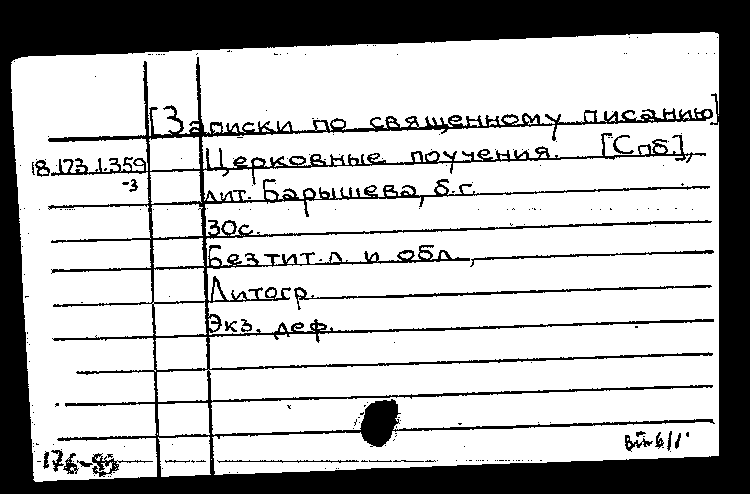 [Записки по священному писанию]
18.173.1.359
-3
Церковные поучения. [Спб],
лит. Барышева, б.г.
30с.
Без тит.л. и обл.,
Литогр.
Экз. деф.
176-89